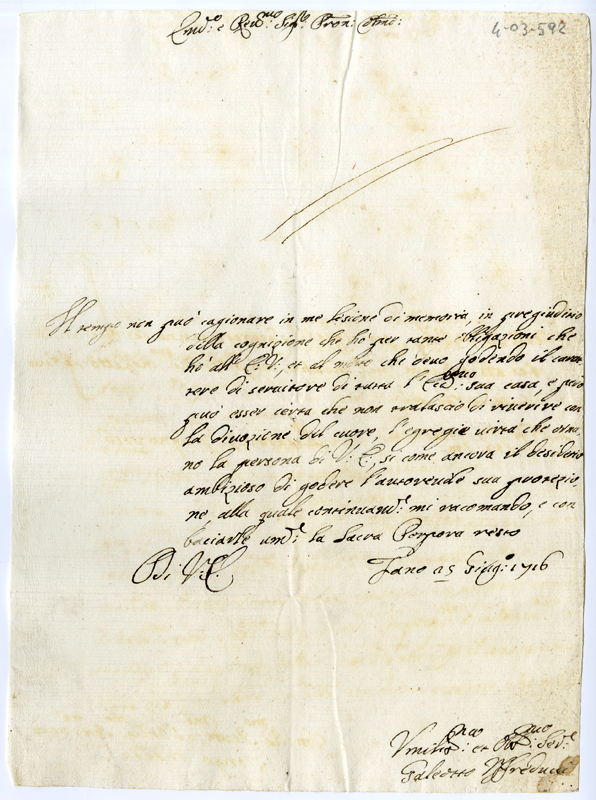 Em.o e Rev.mo Sig.re Pron: Colmo:
4-03-592
Il tempo non può cagionare in me lesione di memoria, in pregiuditio
della cognizione che hò per tante obligazioni che
hò all' E: V:, et al che devo godendo il carat
tere di servitore di tutta l' sua casa e però
può esser certa che non tralascio di riverire con
la divozione del cuore, l'egregie virtù che orna
no la persona di V: E:, si come ancora il desiderio
ambizioso di godere l'autorevole sua protezio
ne, alla quale continuand: mi racomando, e con
baciarle um: la Sacra Porpora resto
Di V: E:
Fano a 5 Giug.o 1716
Umiliss: et Obl: Ser.e
Galeotto Uffreducci